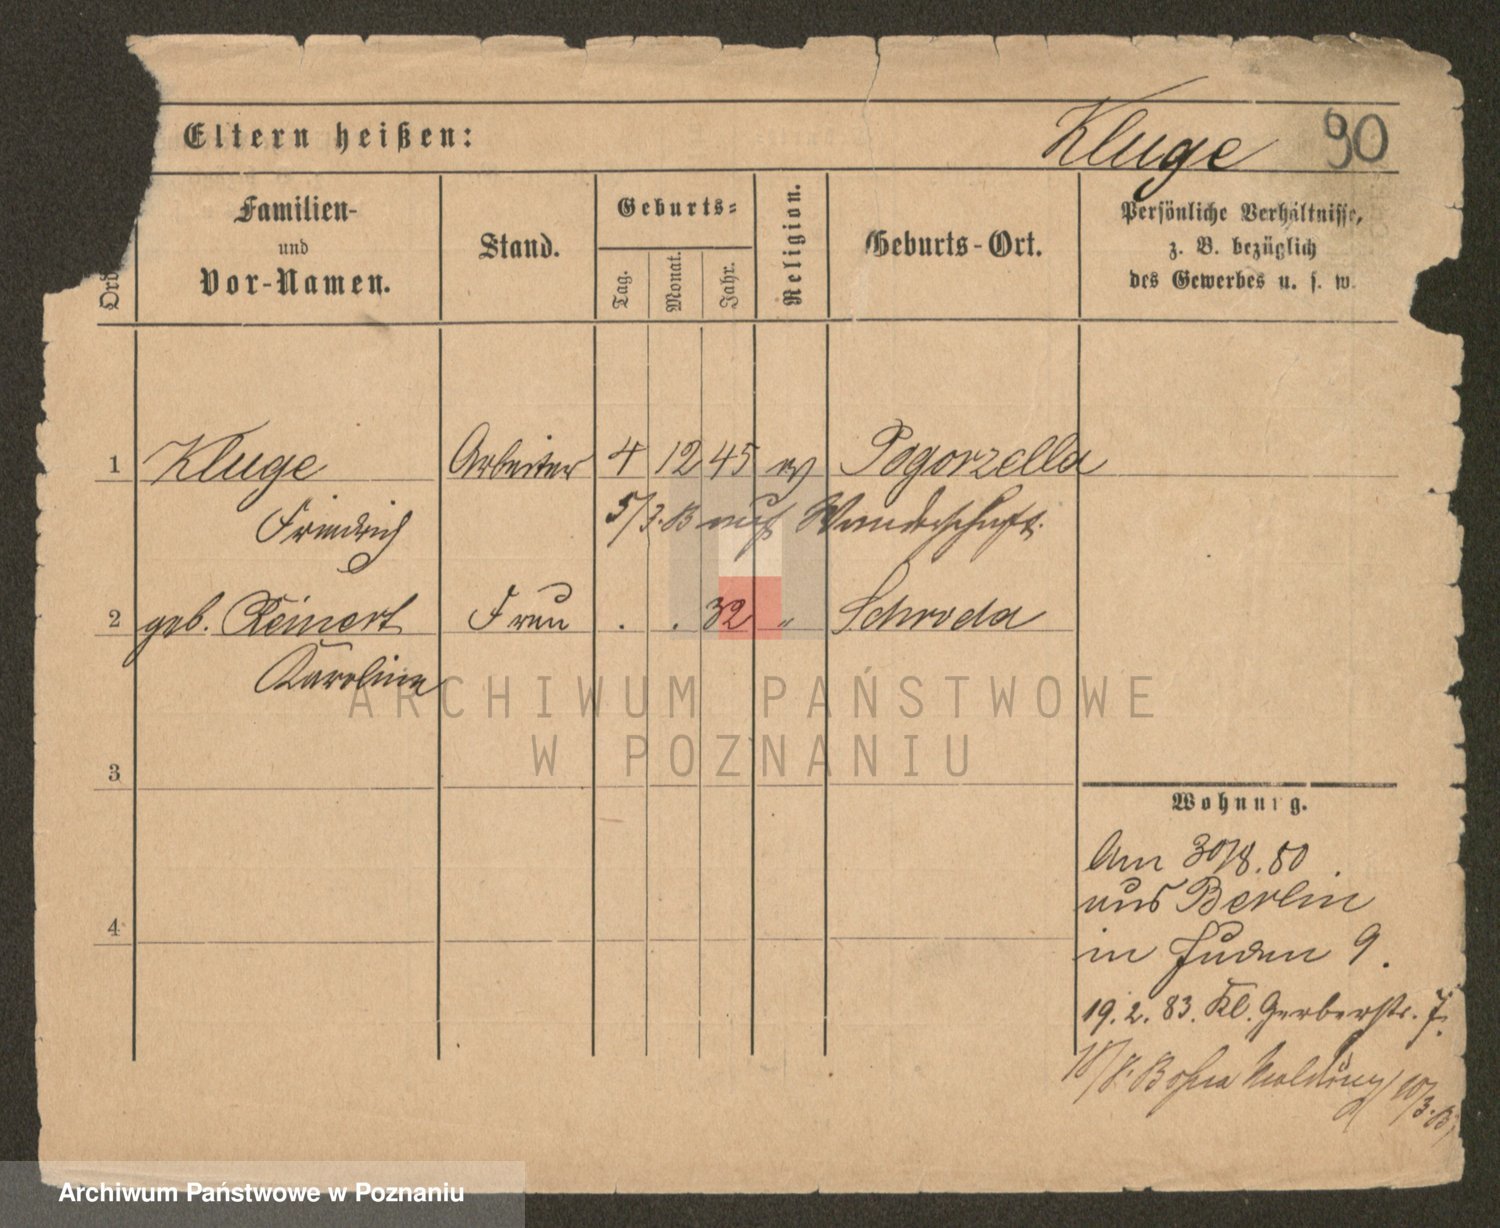 Eltern heißen:
Kluge 90
Ord
Familien-
und
Vor-Namen.
Stand.
Geburts-
Tag.
Monat.
Jahr.
Religion.
Geburts-Ort.
Persönliche Verhältnisse,
z. B. bezüglich
des Gewerbes u. s. w.
1 Kluge Arbeiter 4 12 45 ev Pogorzella
Friedrich 5/3. auf Wanderschaft.
2 geb. Reinert Frau . . 32 „ Schroda
Karoline
ARCHIWUM PAŃSTWOWE
W POZNANIU
3
Wohnung.
Am 30/8. 80
aus Berlin
in Juden 9.
4
19. 2. 83. Kl. Gerberstr. 7.
ohne Meldung
Archiwum Państwowe w Poznaniu